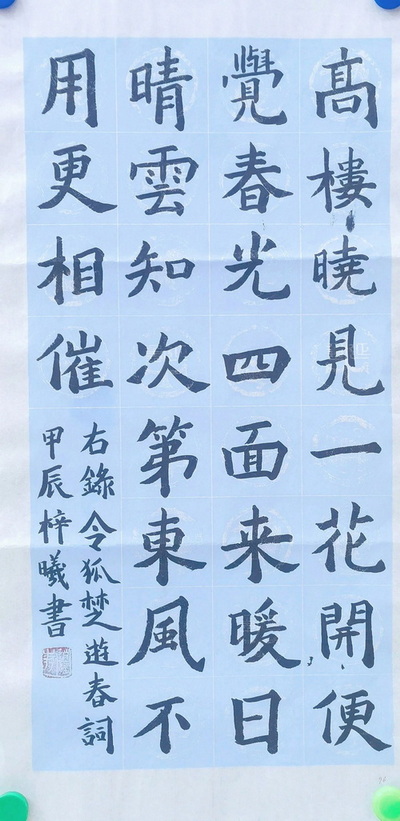 高樓曉見一花開便
覺春光四面来暖日
晴雲知次第東風不
用更相催
右錄令狐楚遊春詞
甲辰梓曦書